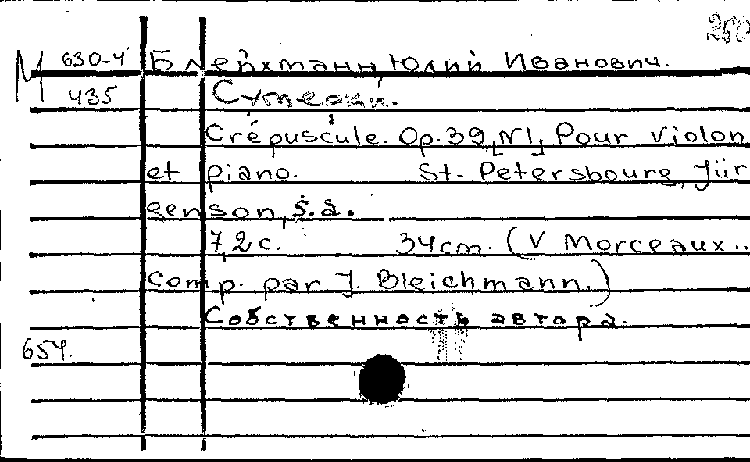 250
М 630-4 Блейхманн, Юлий Иванович.
435 Сумерки.
Crépuscule. Op. 39, [N1] Pour violon
et piano. St-Petersbourg, Jür
genson, s.a.
7,2 с. 34 cm. (V Morceaux..
comp. par J. Bleichmann.)
Собственность автора.
654.